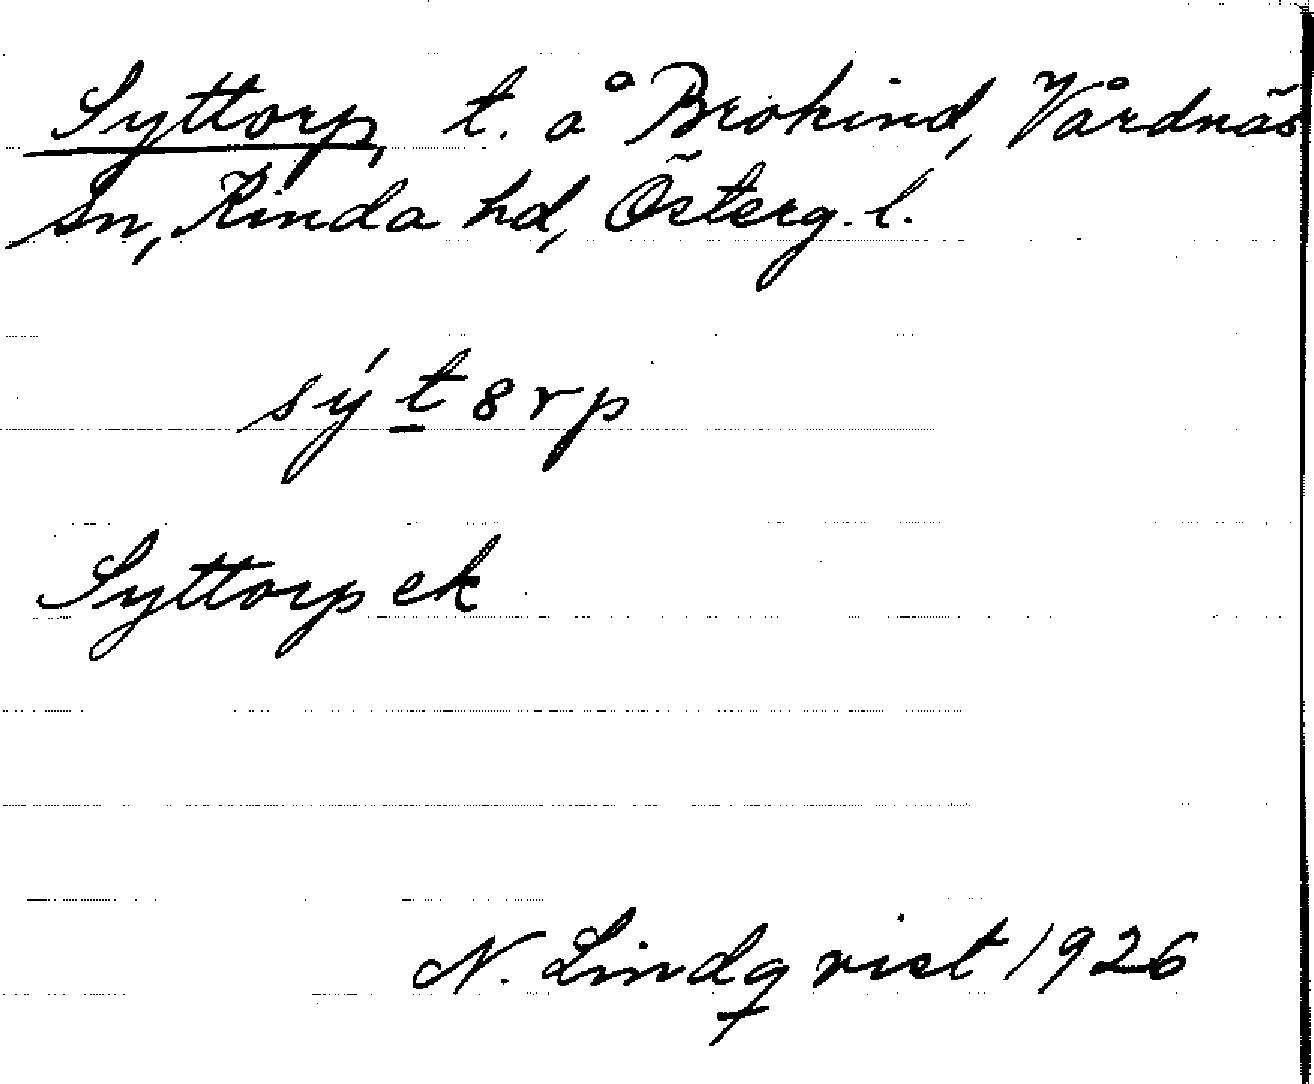 Syttorp, t. å Brokind, Vårdnäs
sn, Kinda hd, Österg. l.
sýt8rp
Syttorp ek
N. Lindqvist 1926